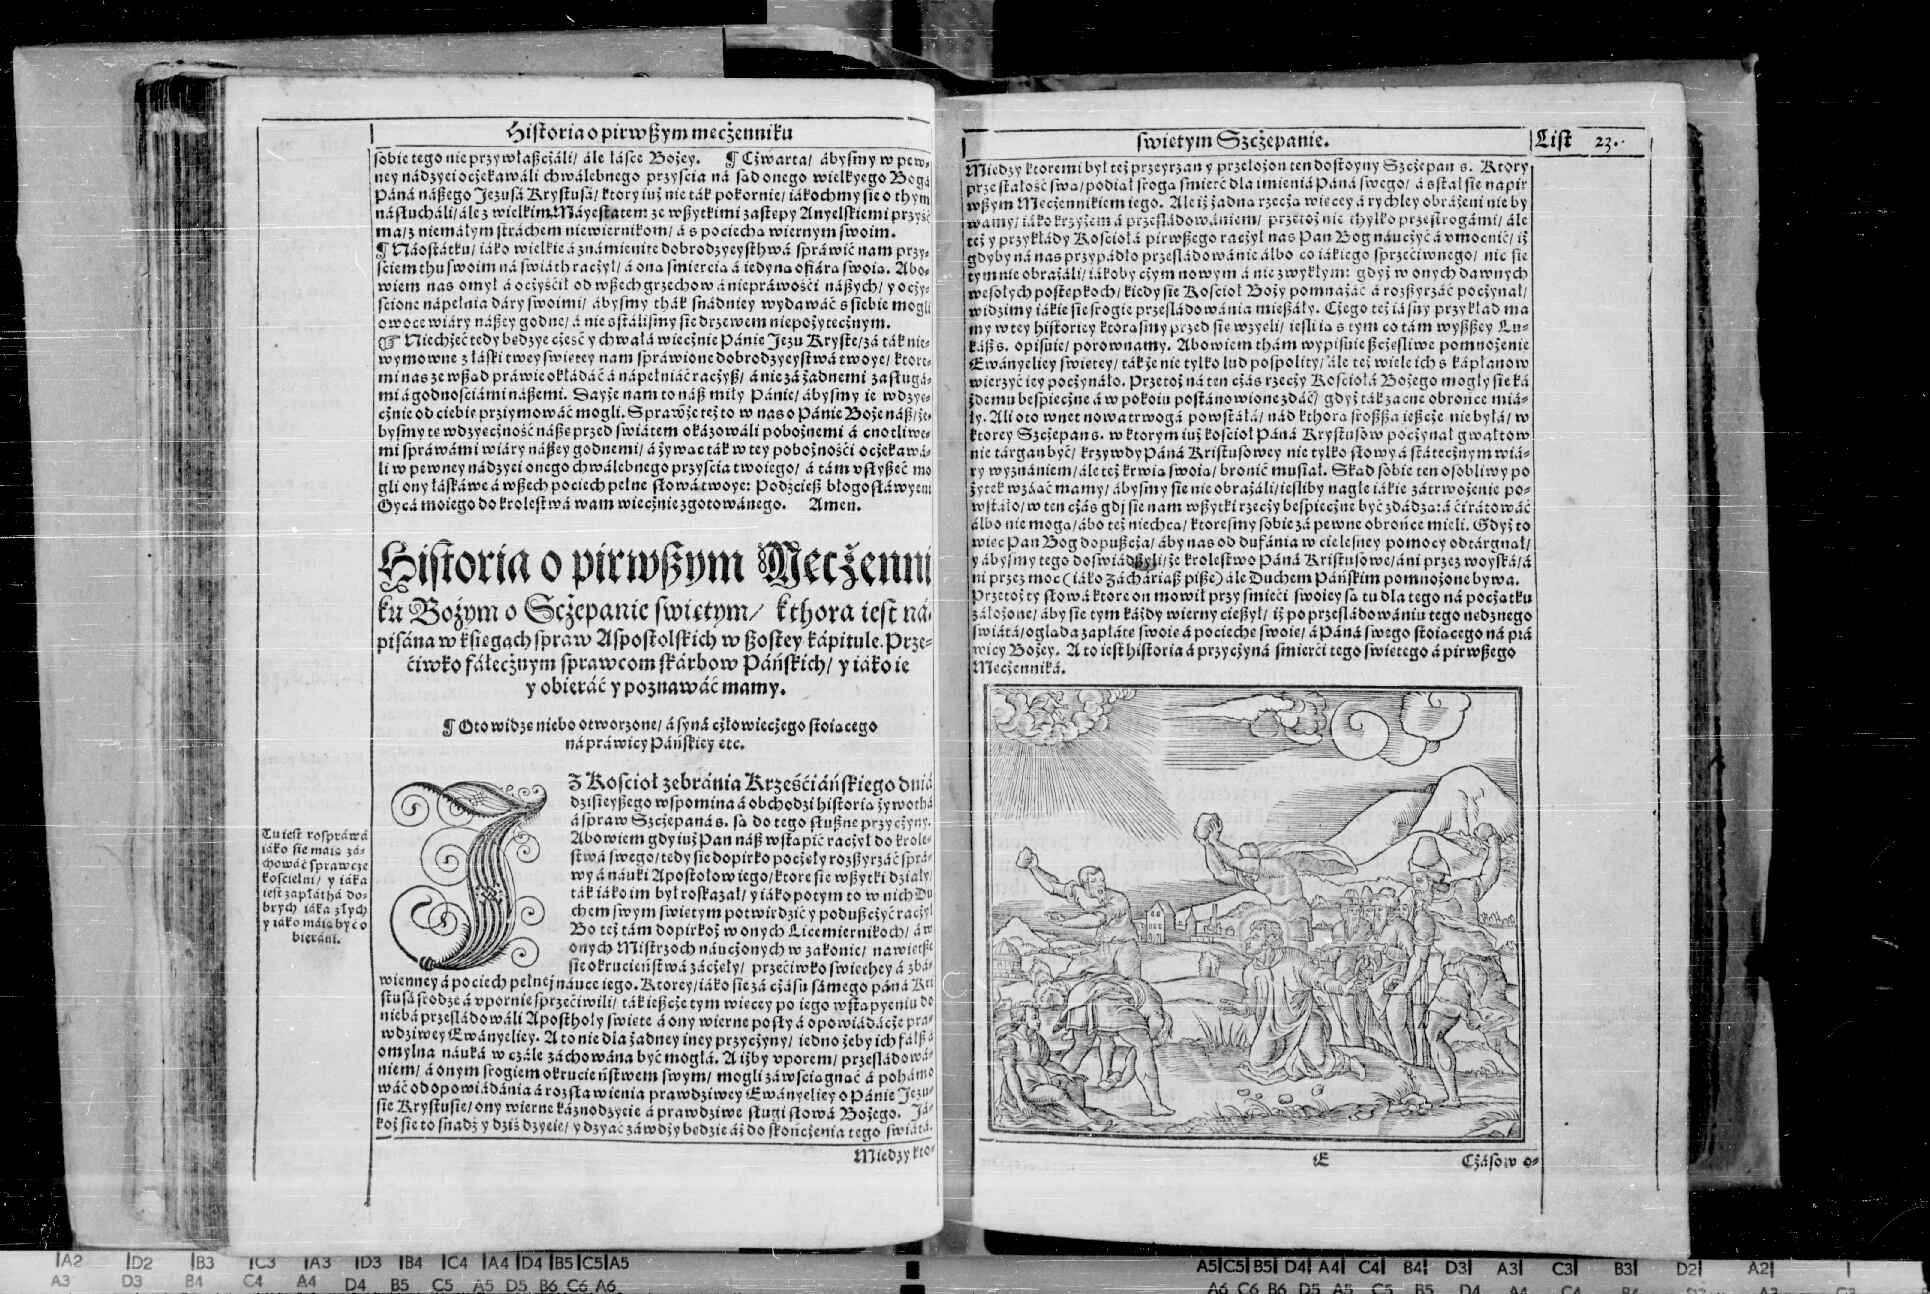 Historia o pirwßym mecżenniku
sobie tego nie przywłaßcżáli/ ále łásce Bożey. ¶ Cżwarta/ ábysmy w pew-
ney nádzyei ocżekawáli chwálebnego przyscia ná sąd onego wielkyego Bogá
Páná náßego Jezusá Krystusá/ ktory iuż nie ták pokornie/ iákochmy sie o thym
násłucháli/ ále z wielkim Máyestatem ze wßytkimi zastępy Anyelskiemi przyść
ma/ z niemáłym stráchem niewiernikom/ á s pociechą wiernym swoim.
¶ Náostátku/ iáko wielkie á známienite dobrodzyeysthwá spráwić nam przy-
ściem thu swoim ná swiáth racżył/ á oną smiercią á iedyną ofiárą swoią. Abo-
wiem nas omył á ocżyścił od wßech grzechow á niepráwości náßych/ y ocży-
ścione nápełnia dáry swoimi/ ábysmy thák snádniey wydawáć s siebie mogli
owoce wiáry náßey godne/ á nie sstálismy sie drzewem niepożytecżnym.
☞ Niechżeć tedy będzye cżeść y chwałá wiecżnie Pánie Jezu Kryste/ zá ták nie-
wymowne z łáski twey swiętey nam spráwione dobrodzyeystwá twoye/ ktore-
mi nas ze wßąd práwie okłádáć á nápełniáć racżyß/ á nie zá żadnemi zasługá-
mi á godnościámi náßemi. Dayże nam to náß miły Pánie/ ábysmy ie wdzye-
cżnie od ciebie prziymowáć mogli. Sprawże też to w nas o Pánie Boże náß/ że-
bysmy tę wdzyecżność náßę przed swiátem okázowáli pobożnemi á cnotliwe-
mi spráwámi wiáry náßey godnemi/ á żywąc ták w tey pobożności ocżekawá-
li w pewney nádzyei onego chwálebnego przyscia twoiego/ á tám vsłyßeć mo
gli ony łáskáwe á wßech pociech pełne słowá twoye: Podźcieß błogosłáwyeni
Oycá moiego do krolestwá wam wiecżnie zgotowánego. Amen.
Historia o pirwßym Mecżenni
ku Bożym o Scżepanie swiętym/ kthora iest ná-
pisána w księgach spraw Aposto​lskich w ßostey kápitule. Prze-
ćiwko fałecżnym sprawcom skárbow Páńskich/ y iáko ie
y obieráć y poznawáć mamy.
¶ Oto widzę niebo otworzone/ á syná cżłowiecżego stoiącego
ná práwicy Páńskiey etc.
Tu iest rospráwá
iáko sie máią zá-
chowáć sprawcze
kościelni/ y iáka
iest zapłáthá do-
brych iáka złych
y iáko máią być o
bieráni.
IZ Kościoł zebránia Krześćiáńskiego dniá
dzisieyßego wspomina á obchodzi historią żywothá
á spraw Szcżepaná s. są do tego słußne przycżyny.
Abowiem gdy iuż Pan náß wstąpić racżył do krole-
stwá swego/ tedy sie dopirko pocżęły rozßyrzáć sprá-
wy á náuki Apostołow iego/ ktore sie wßytki dziáły/
ták iáko im był roskazał/ y iáko potym to w nich Du
chem swym swiętym potwirdzić y podußcżyć racżył
Bo też tám dopirkoż w onych Licemiernikoch/ á w
onych Mistrzoch náucżonych w zakonie/ nawiętße
sie okrucieństwá zácżęły/ przećiwko swiethey á zbá-
wienney á pociech pełnej náuce iego. Ktorey/ iáko sie zá cżásu sámego páná Kri
stusá srodze á vpornie sprzećiwili/ ták ießcże tym więcey po iego wstąpyeniu do
niebá prześládowáli Apostholy swięte á ony wierne posły á opowiádácże pra-
wdziwey Ewányeliey. A to nie dla żadney iney przycżyny/ iedno żeby ich fałßá
omylna náuká w cżále záchowána być mogłá. A iżby vporem/ prześládowá-
niem/ á onym srogiem okrucieństwem swym/ mogli záwsciągnąć á pohámo
wáć od opowiádánia á rozsławienia prawdziwey Ewányeliey o Pánie Jezu-
sie Krystusie/ ony wierne káznodzyeie á prawdziwe sługi słowá Bożego. Já-
koż sie to snádź y dziś dzyeie/ y dzyać záwżdy będzie áż do skończenia tego swiátá.
Między kto-
swiętym Szcżepanie.
List 23.
Między ktoremi był też przeyrzan y przełożon ten dostoyny Szcżepan s. Ktory
prze stałość swą/ podiął srogą śmierć dla imienia Páná swego/ á sstał sie napir
wßym Mecżennikiem iego. Ale iż żadną rzecżą więcey á rychley obráżeni nie by
wamy/ iáko krzyżem á prześládowániem/ przetoż nie thylko przestrogámi/ ále
też y przykłády Kościołá pirwßego racżył nas Pan Bog náucżyć á vmocnić/ iż
gdyby ná nas przypádło prześládowánie álbo co iákiego sprzeciwnego/ nic sie
tym nie obráżáli/ iákoby cżym nowym á nie zwykłym: gdyż w onych dawnych
wesołych postępkoch/ kiedy sie Kościoł Boży pomnażáć á rozßyrzáć pocżynał/
widzimy iákie sie srogie prześládowánia mießáły. Cżego też iásny przykład ma
my w tey historiey ktorąsmy przed się wzyęli/ iesli ią s tym co tám wyßßey Lu-
káß s. opisuie/ porownamy. Abowiem thám wypisuie ßcżęsliwe pomnożenie
Ewányeliey swiętey/ tákże nie tylko lud pospolity/ ále też wiele ich s kápłanow
wierzyć iey pocżynáło. Przetoż ná ten cżás rzecży Kościołá Bożego mogły sie ká
żdemu bespiecżne á w pokoiu postánowione zdáć/ gdyż ták zacne obrońce miá-
ły. Ali oto wnet nowa trwogá powstáłá/ nád kthorą sroßßa ießcże nie byłá/ w
ktorey Szcżepan s. w ktorym iuż kościoł Páná Krystusow pocżynał gwałtow
nie tárgan być/ krzywdy Páná Kristusowey nie tylko słowy á státecżnym wiá-
ry wyznániem/ ále też krwią swoią/ bronić musiał. Skąd sobie ten osobliwy po
żytek wziąć mamy/ ábysmy sie nie obráżáli/ iesliby nagle iákie zátrwożenie po-
wstáło/ w ten cżás gdj sie nam wßytki rzecży bespiecżne być zdádzą: á ći rátowáć
álbo nie mogą/ ábo też niechcą/ ktoresmy sobie zá pewne obrońce mieli. Gdyż to
więc Pan Bog dopußcża/ áby nas od dufánia w cielesney pomocy odtárgnął/
y ábysmy tego doświádßyli/ że krolestwo Páná Kristusowe/ áni przez woyská/ á
ni przez moc (iáko Záchariáß piße) ále Duchem Páńskim pomnożone bywa.
Przetoż ty słowá ktore on mowił przy śmierći swoiey są tu dla tego ná pocżątku
záłożone/ áby sie tym káżdy wierny cießył/ iż po prześládowániu tego nędznego
swiátá/ ogląda zapłátę swoię á pociechę swoię/ á Páná swego stoiącego ná prá
wicy Bożey. A to iest historia á przycżyná śmierći tego swiętego á pirwßego
Mecżenniká.
E
Cżásow o-
A2 D2 B3 C3 A3 D3 B4 C4 A4 D4 B5 C5 A5
A3 D3 B4 C4 A4 D4 B5 C5 A5 D5 B6 C6 A6
A5 C5 B5 D4 A4 C4 B4 D3 A3 C3 B3 D2 A2
A6 C6 B6 D5 A5 C5 B5 D4 A4 C4 B4 D3 A3 C3